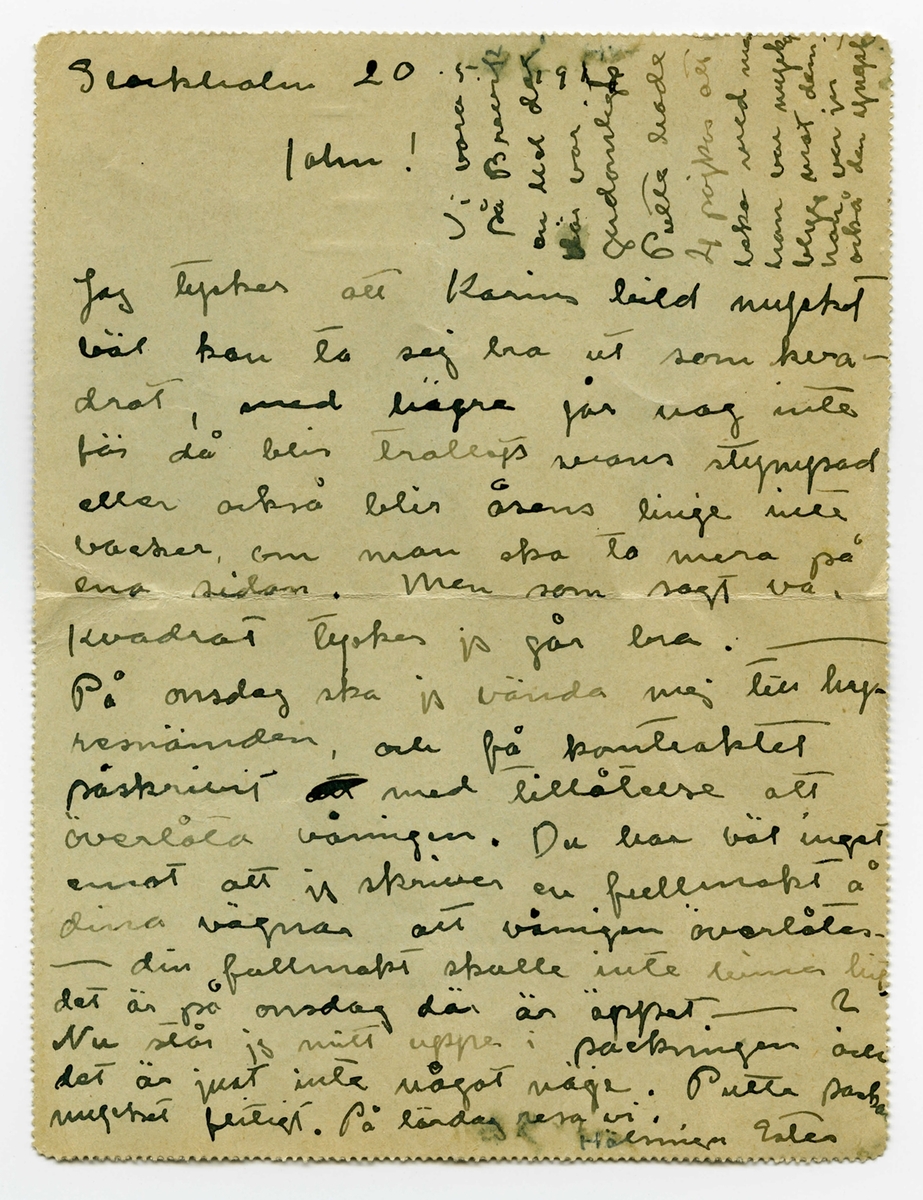 Stockholm 20.5.
John!
Jag tycker att Karins bild mycket
väl kan ta sig bra ut som kva-
drat, med högre går nog inte
för då blir trollets svans stympad
eller också blir åsens linje inte
vacker, om man ska ta mera på
ena sidan. Men som sagt va,
kvadrat tycker jg går bra. —
På onsdag ska jg vända mej till hy-
resnämnden, och få kontraktet
påskrivit med tillåtelse att
överlåta våningen. Du har väl inget
emot att jg skriver en fullmakt å
dina vägnar att våningen överlåtes
— din fullmakt skulle inte hinna hit
det är på onsdag där är öppet — ?
Nu står jg mitt uppe i packningen och
det är just inte något nöje. Putte packar
mycket flitigt. På lördag resa vi.
Hälsningar Ester
Vi vara
på
en del
där var
Putte hade
4 pojkar att
leka med men
han var mycket
blyg mot dem
han var ju
också den yngste